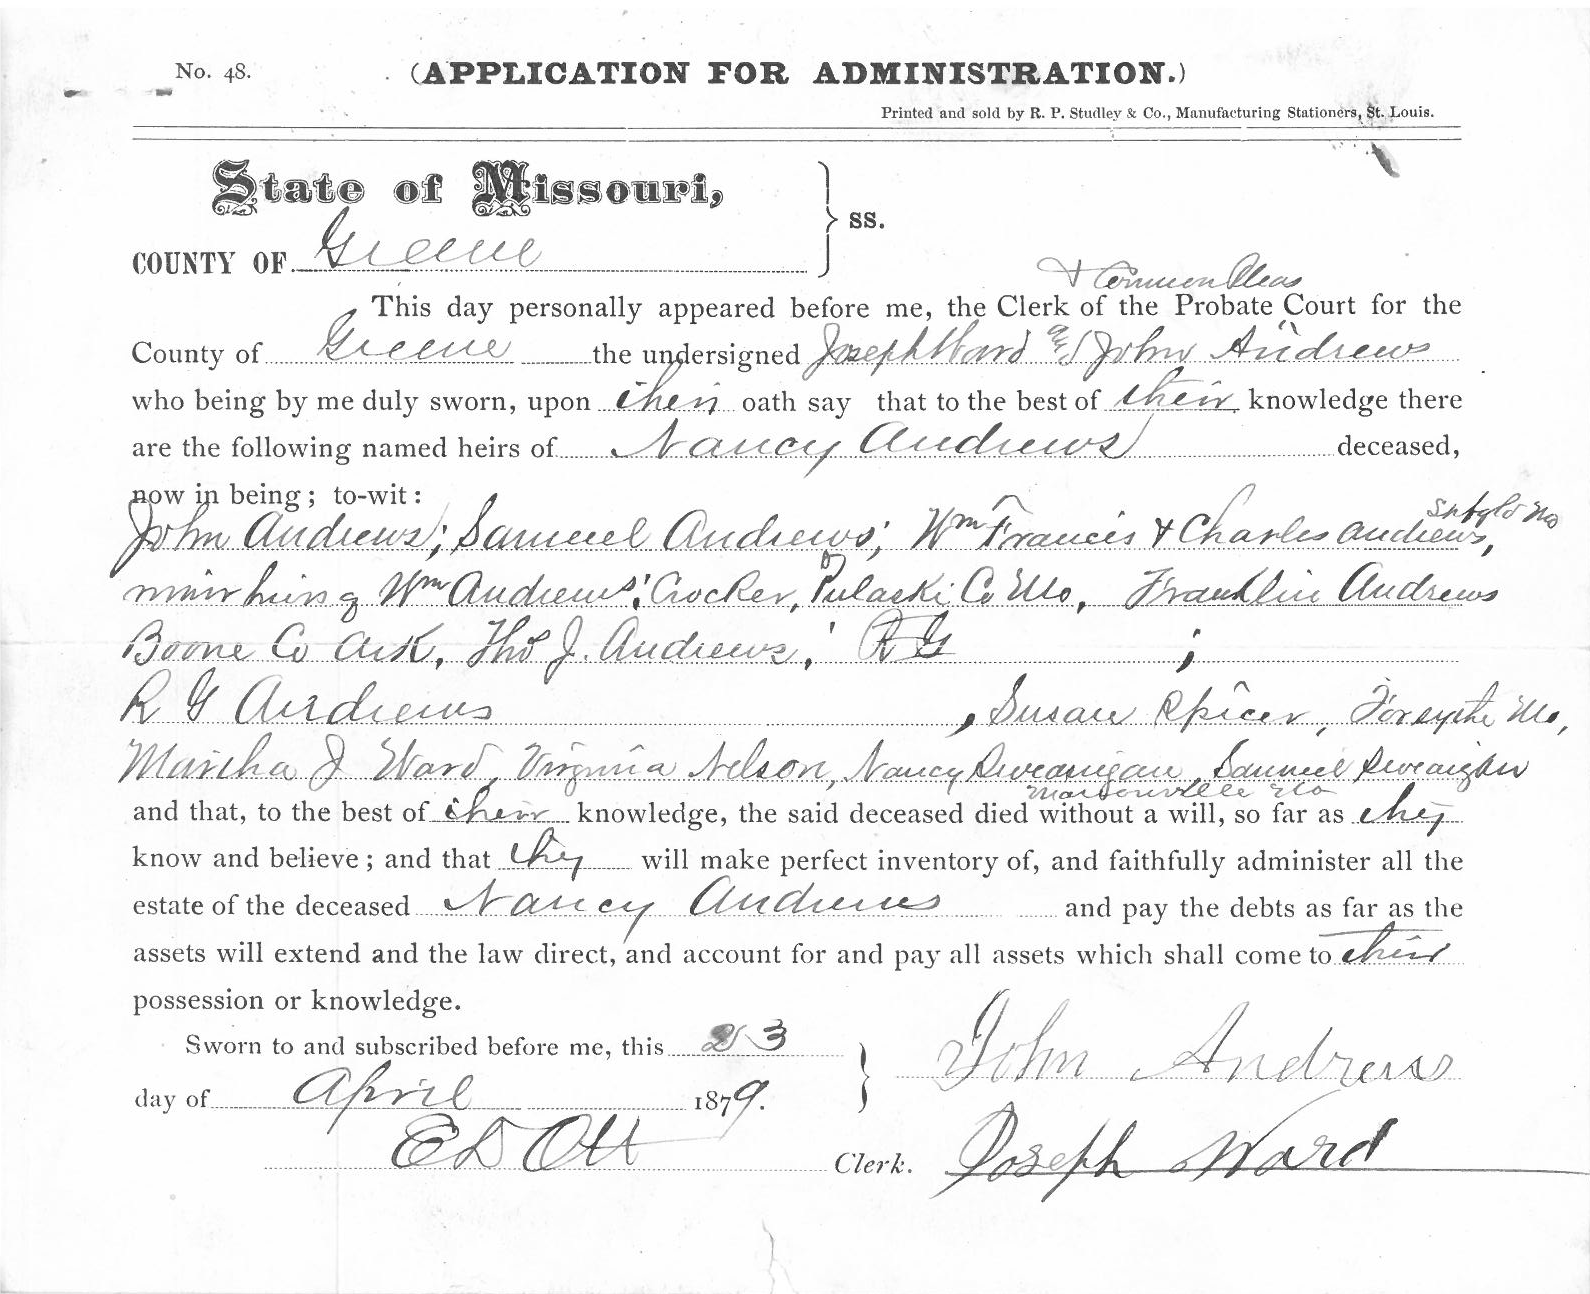 No. 48.
(APPLICATION FOR ADMINISTRATION.)
Printed and sold by R. P. Studley & Co., Manufacturing Stationers, St. Louis.
State of Missouri,
ss.
COUNTY OF Greene
& Common Pleas
This day personally appeared before me, the Clerk of the Probate Court for the
County of Greene the undersigned Joseph Ward and John Andrews
who being by me duly sworn, upon their oath say that to the best of their knowledge there
are the following named heirs of Nancy Andrews deceased,
now in being; to-wit:
John Andrews; Samuel Andrews; Wm Francis & Charles Andrews,
minor heirs of Wm Andrews; Crocker, Pulaski Co Mo, Franklin Andrews
Boone Co Ark, Tho J. Andrews; R G ;
R G Andrews , Susan Spicer, Forsythe Mo,
Martha J Ward, Virginia Nelson, Nancy Samuel
Marionville Mo
and that, to the best of their knowledge, the said deceased died without a will, so far as they
know and believe; and that they will make perfect inventory of, and faithfully administer all the
estate of the deceased Nancy Andrews and pay the debts as far as the
assets will extend and the law direct, and account for and pay all assets which shall come to their
possession or knowledge.
Sworn to and subscribed before me, this 23
day of April 1879.
John Andrews
E D Ott Clerk.
Joseph Ward